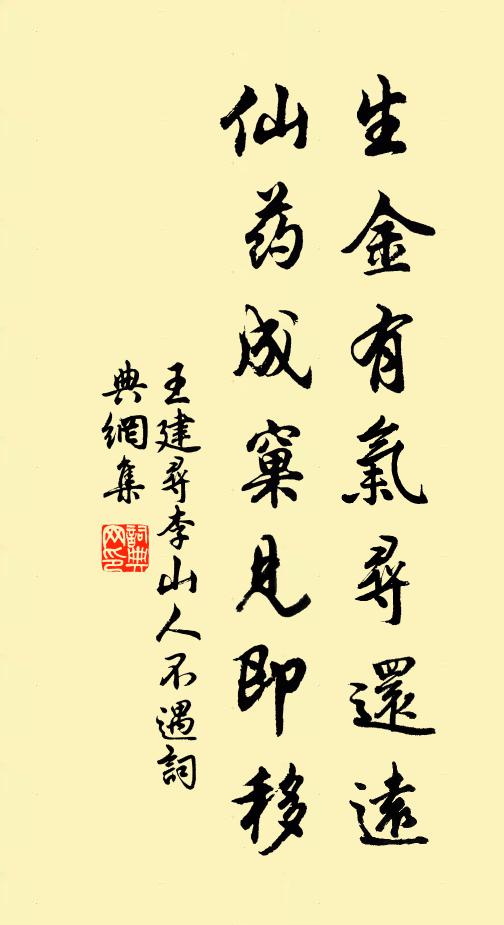 生金有氣尋還遠
仙药成窠見即移
王建尋李山人不遇詞
典網集
詞典網印